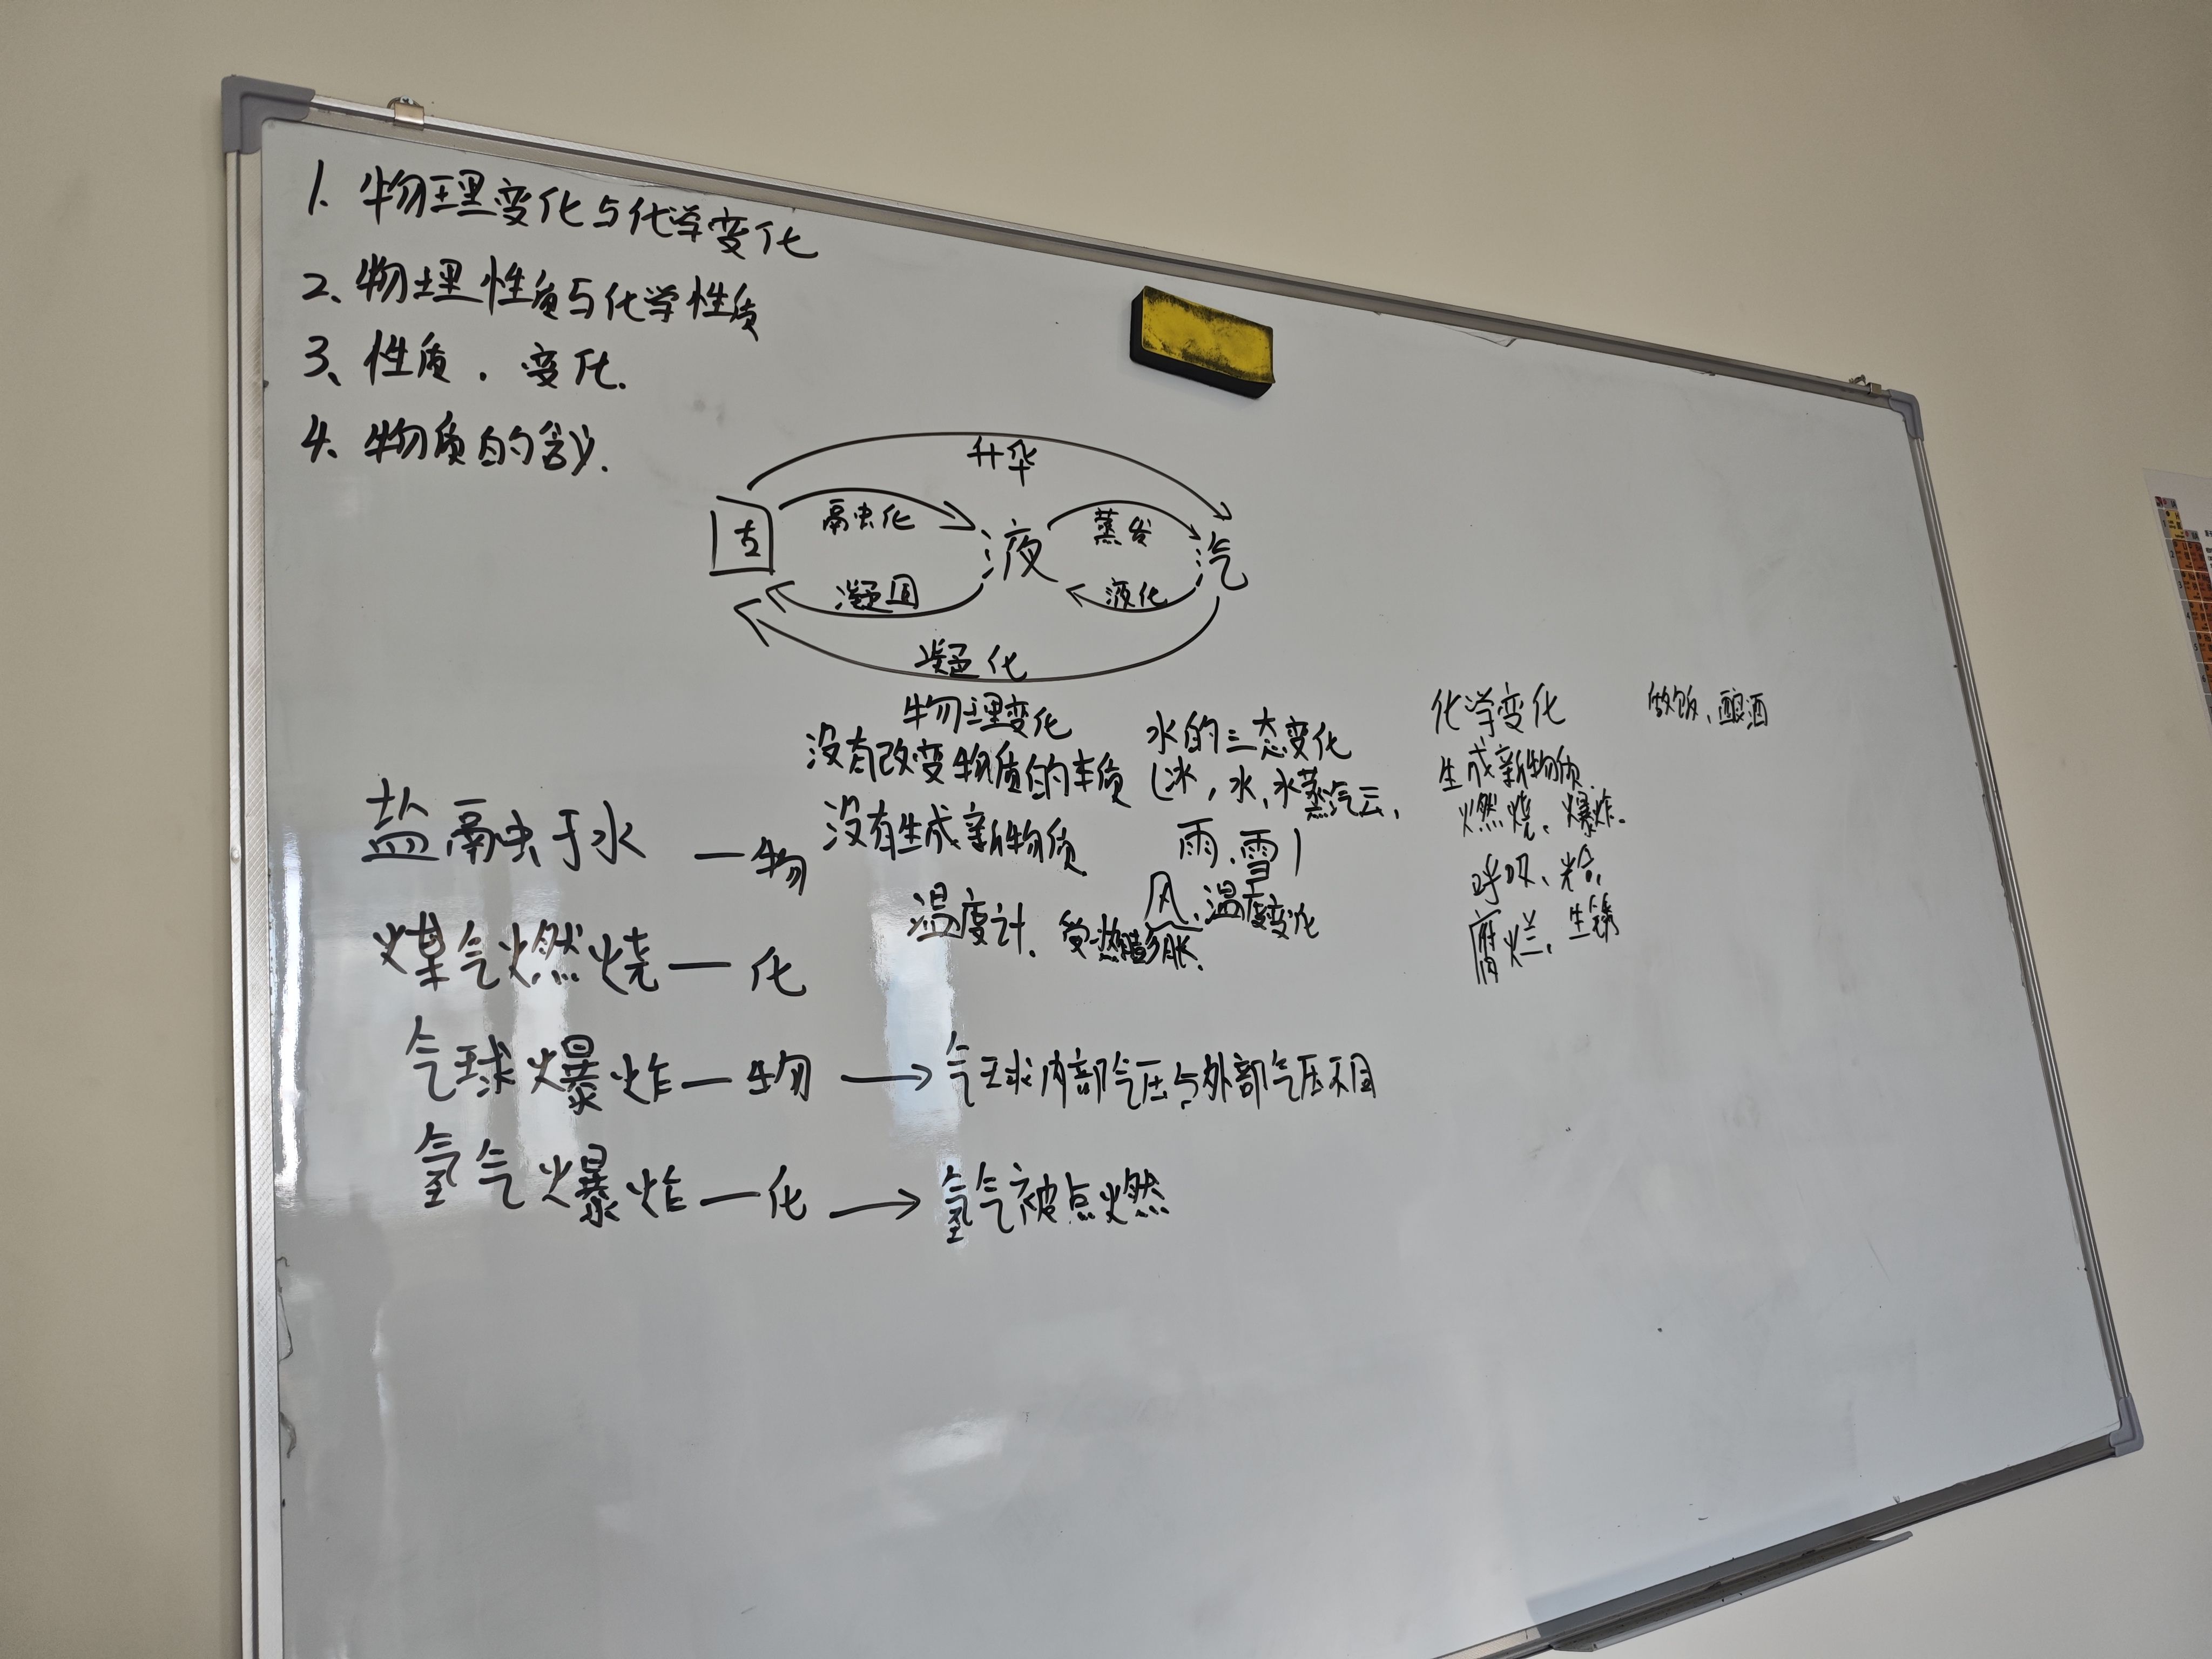 1. 物理变化与化学变化
2、物理性质与化学性质
3、性质. 变化.
4、物质的
升华
固
融化
液
蒸发
汽
凝固
液化
凝化
物理变化
没有改变物质的本质
没有生成新物质
温度计. 受热膨胀.
水的三态变化
(冰, 水, 水蒸气云,
雨、雪)
风、温度变化
化学变化
生成新物质.
燃烧、爆炸.
呼吸、光合,
腐烂、生锈
做饭、酿酒
盐融于水 — 物
煤气燃烧 — 化
气球爆炸 — 物 → 气球内部气压与外部气压不同
氢气爆炸 — 化 → 氢气被点燃